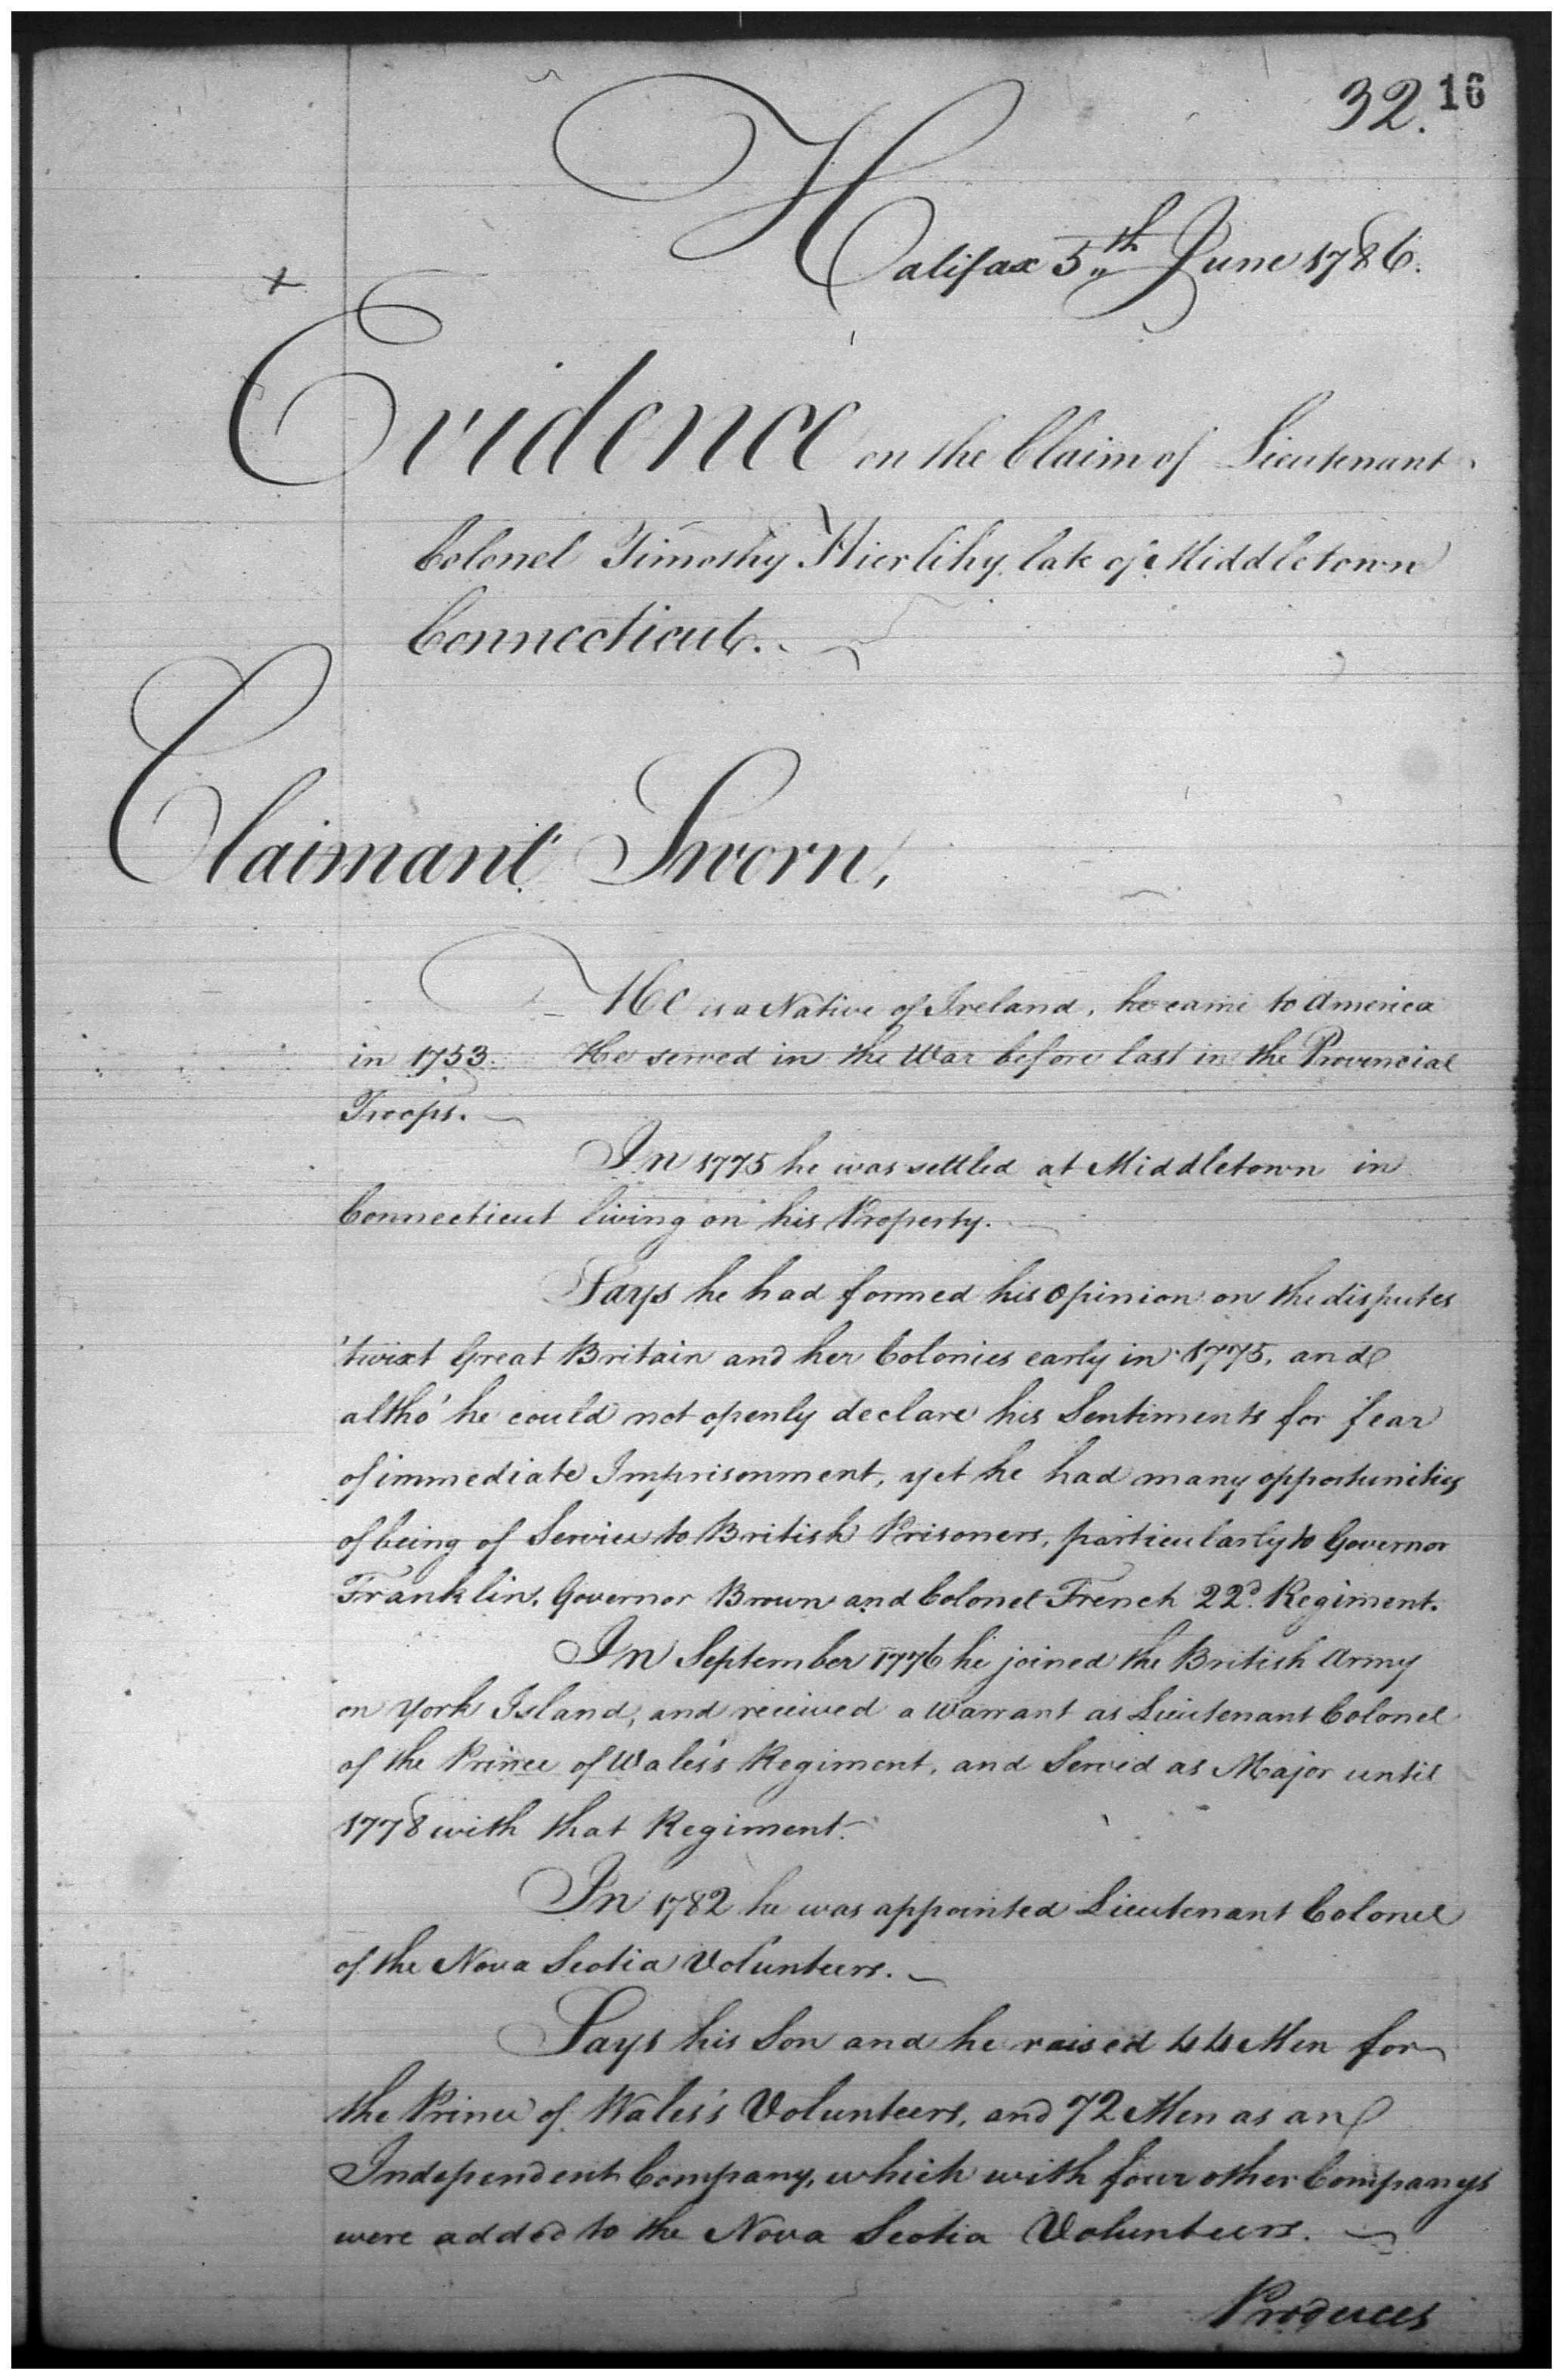 32. 16
Halifax 5th June 1786.
Evidence on the Claim of Lieutenant
Colonel Timothy Hierlihy late of Middletown
Connecticut.
Claimant Sworn,
He is a Native of Ireland, he came to America
in 1753. He served in the War before last in the Provincial
Troops.
In 1775 he was settled at Middletown in
Connecticut living on his Property.
Says he had formed his opinion on the disputes
'twixt Great Britain and her Colonies early in 1775, and
altho' he could not openly declare his Sentiments for fear
of immediate Imprisonment, yet he had many opportunities
of being of Service to British Prisoners, particularly to Governor
Franklin, Governor Brown and Colonel French 22d. Regiment.
In September 1776 he joined the British Army
on York Island, and received a Warrant as Lieutenant Colonel
of the Prince of Wales's Regiment, and Served as Major until
1778 with that Regiment.
In 1782 he was appointed Lieutenant Colonel
of the Nova Scotia Volunteers.
Says his Son and he raised 44 Men for
the Prince of Wales's Volunteers, and 72 Men as an
Independent Company, which with four other Companys
were added to the Nova Scotia Volunteers.
Produces